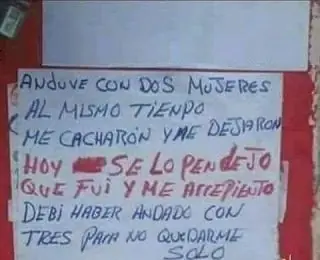 ANDUVE CON DOS MUJERES
AL MISMO TIENPO
ME CACHARON Y ME DEJARON
HOY SE LO PENDEJO
QUE FUI Y ME ARREPIENTO
DEBI HABER ANDADO CON
TRES PARA NO QUEDARME
SOLO